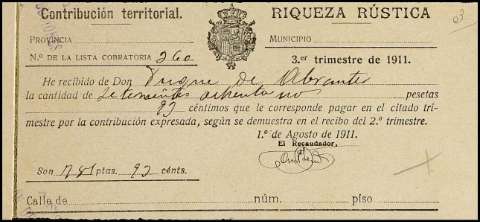 Contribución territorial. RIQUEZA RÚSTICA
PROVINCIA MUNICIPIO
N.º DE LA LISTA COBRATORIA 260 3.er trimestre de 1911.
He recibido de Don Duque de Abrantes
la cantidad de setecientas ochenta pesetas
92 céntimos que le corresponde pagar en el citado tri-
mestre por la contribución expresada, según se demuestra en el recibo del 2.º trimestre.
1.º de Agosto de 1911.
El Recaudador,
SON 781 ptas. 92 cénts.
Calle de núm. piso